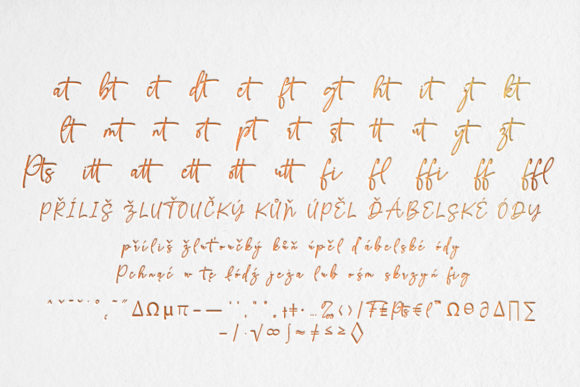 at bt ct dt et ft gt ht it jt kt
lt mt nt ot pt rt st tt ut yt zt
Pts itt att ett ott utt fi fl ffi ff ffl
PŘÍLIŠ ŽLUŤOUČKÝ KŮŇ ÚPĚL ĎÁBELSKÉ ÓDY
příliš žluťoučký kůň úpěl ďábelské ódy
Pchnąć w tę łódź jeża lub ośm skrzyń fig
ΔΩμπ–— ‡‡·…‰‹›/ Pts€ℓ™ΩΘ∂Δ∏∑
−/·√∞∫≈≠≤≥◊